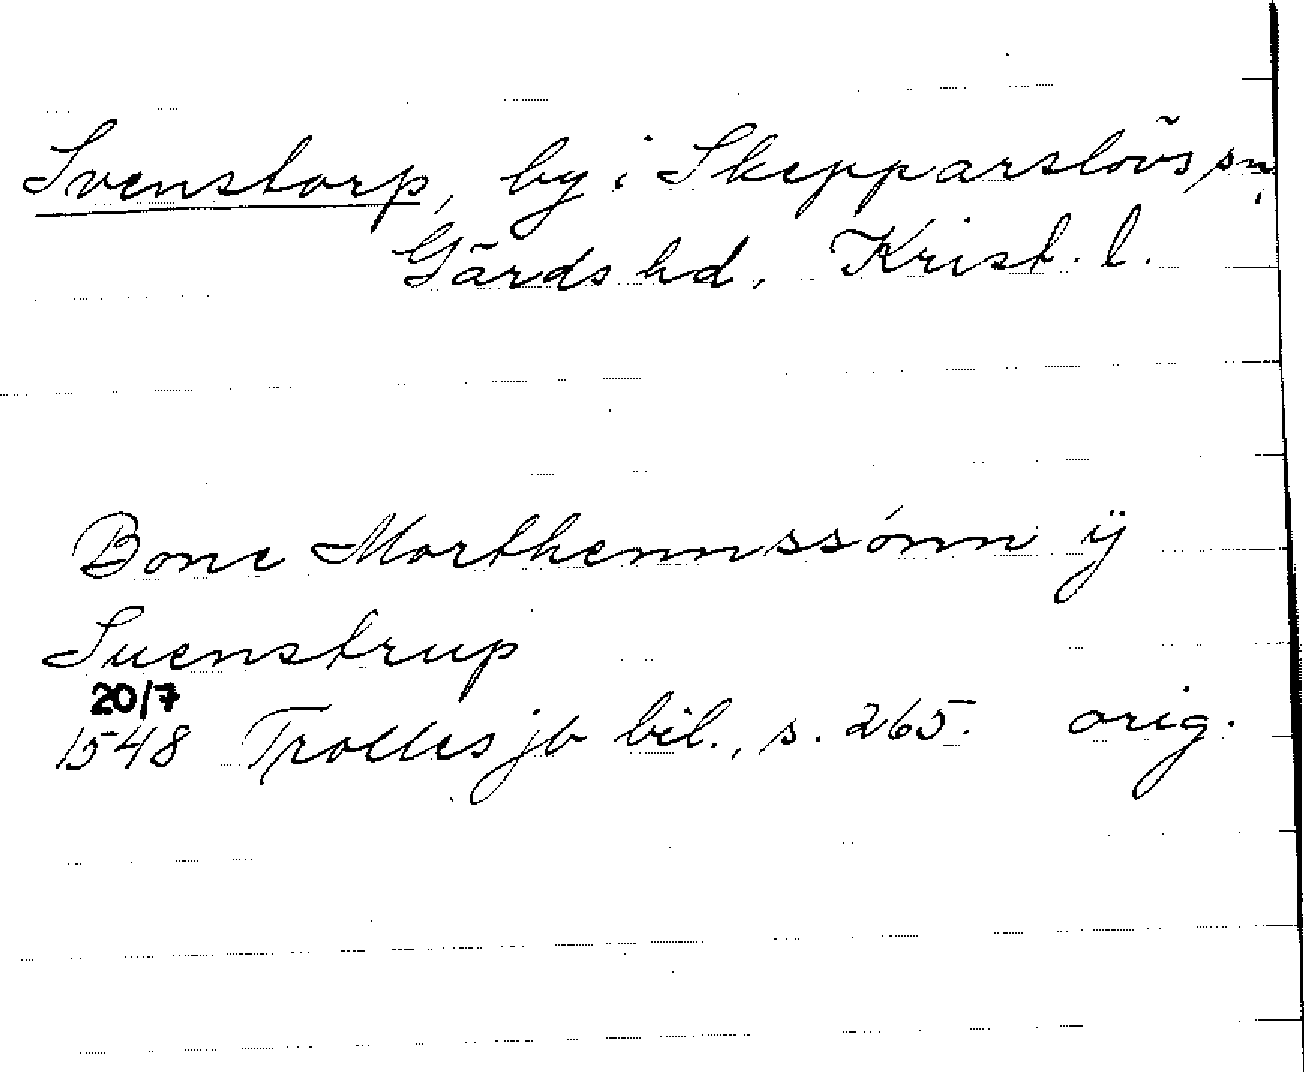 Svenstorp, by i Skepparslövs sn,
Gärds hd, Krist. l.
Bone Morthennssónn ÿ
Suenstrup
20/7
1548 Trolles jb bil., s. 265. orig.